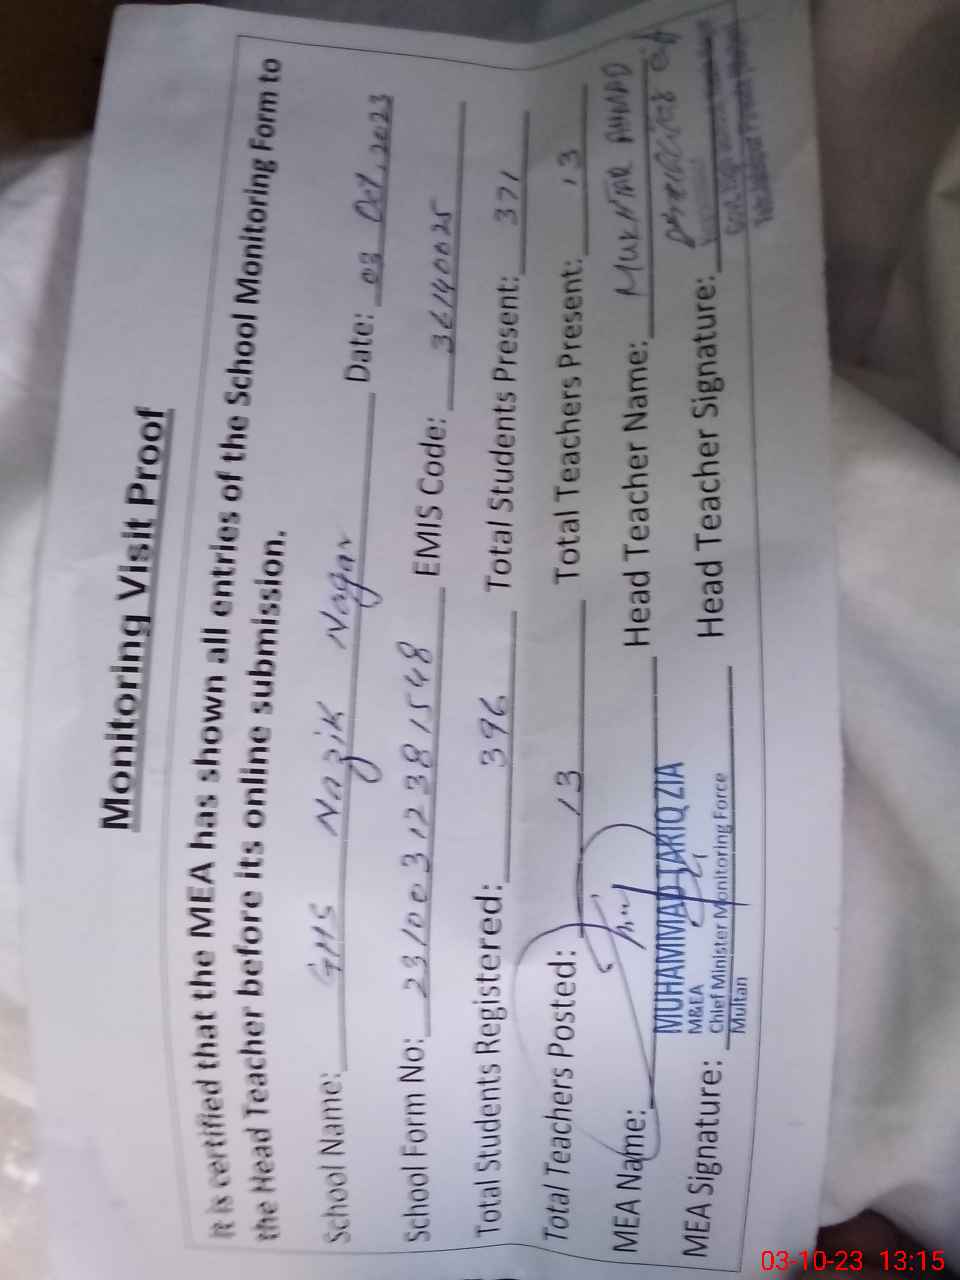 Monitoring Visit Proof
It is certified that the MEA has shown all entries of the School Monitoring Form to
the Head Teacher before its online submission.
School Name: GHS Nazik Nagar Date: 03 Oct, 2023
School Form No: 23100312381548 EMIS Code: 36140025
Total Students Registered: 396 Total Students Present: 371
Total Teachers Posted: 13 Total Teachers Present: 13
MEA Name: MUHAMMAD TARIQ ZIA Head Teacher Name: MUKHTAR AHMAD
M&EA
Chief Minister Monitoring Force
Multan
MEA Signature: Head Teacher Signature:
03-10-23 13:15